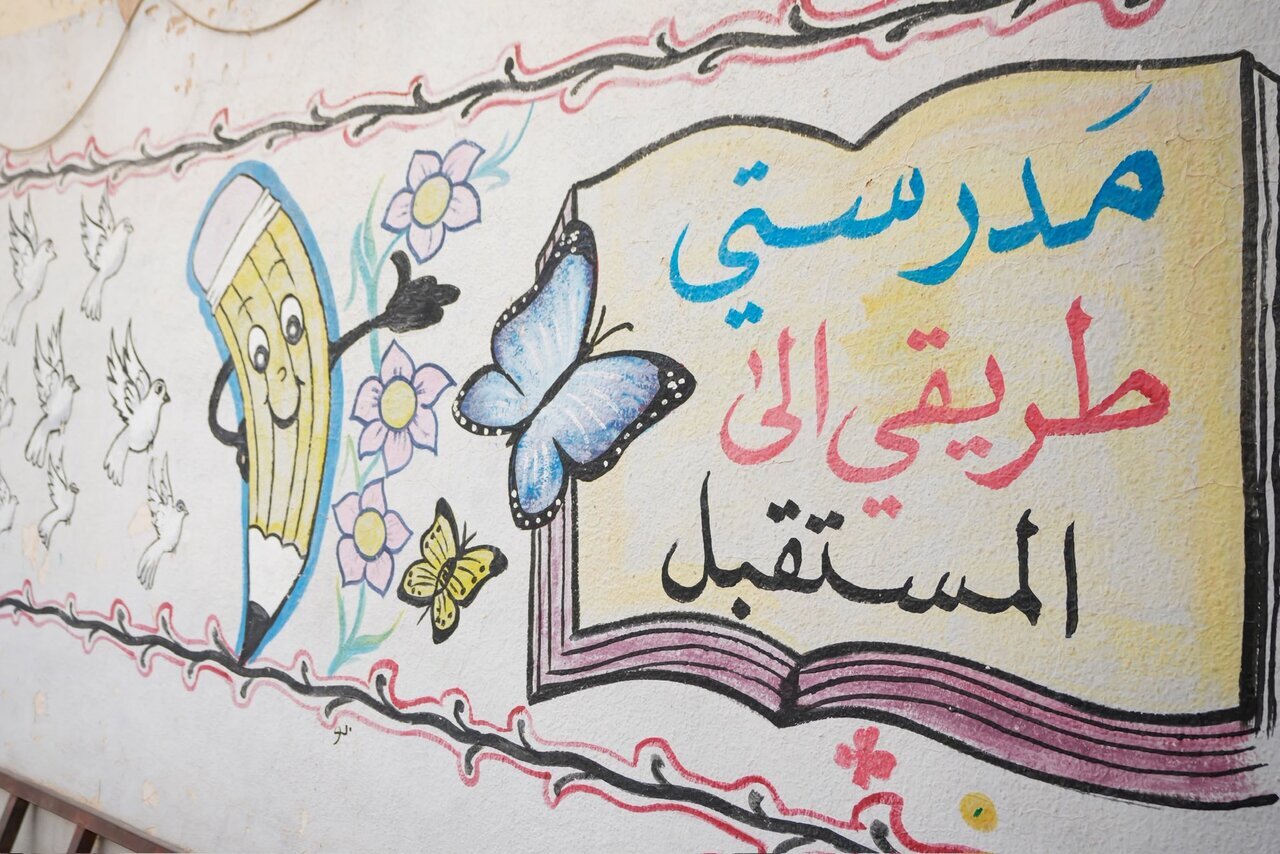 مَدرستي
طريقي الى
المستقبل